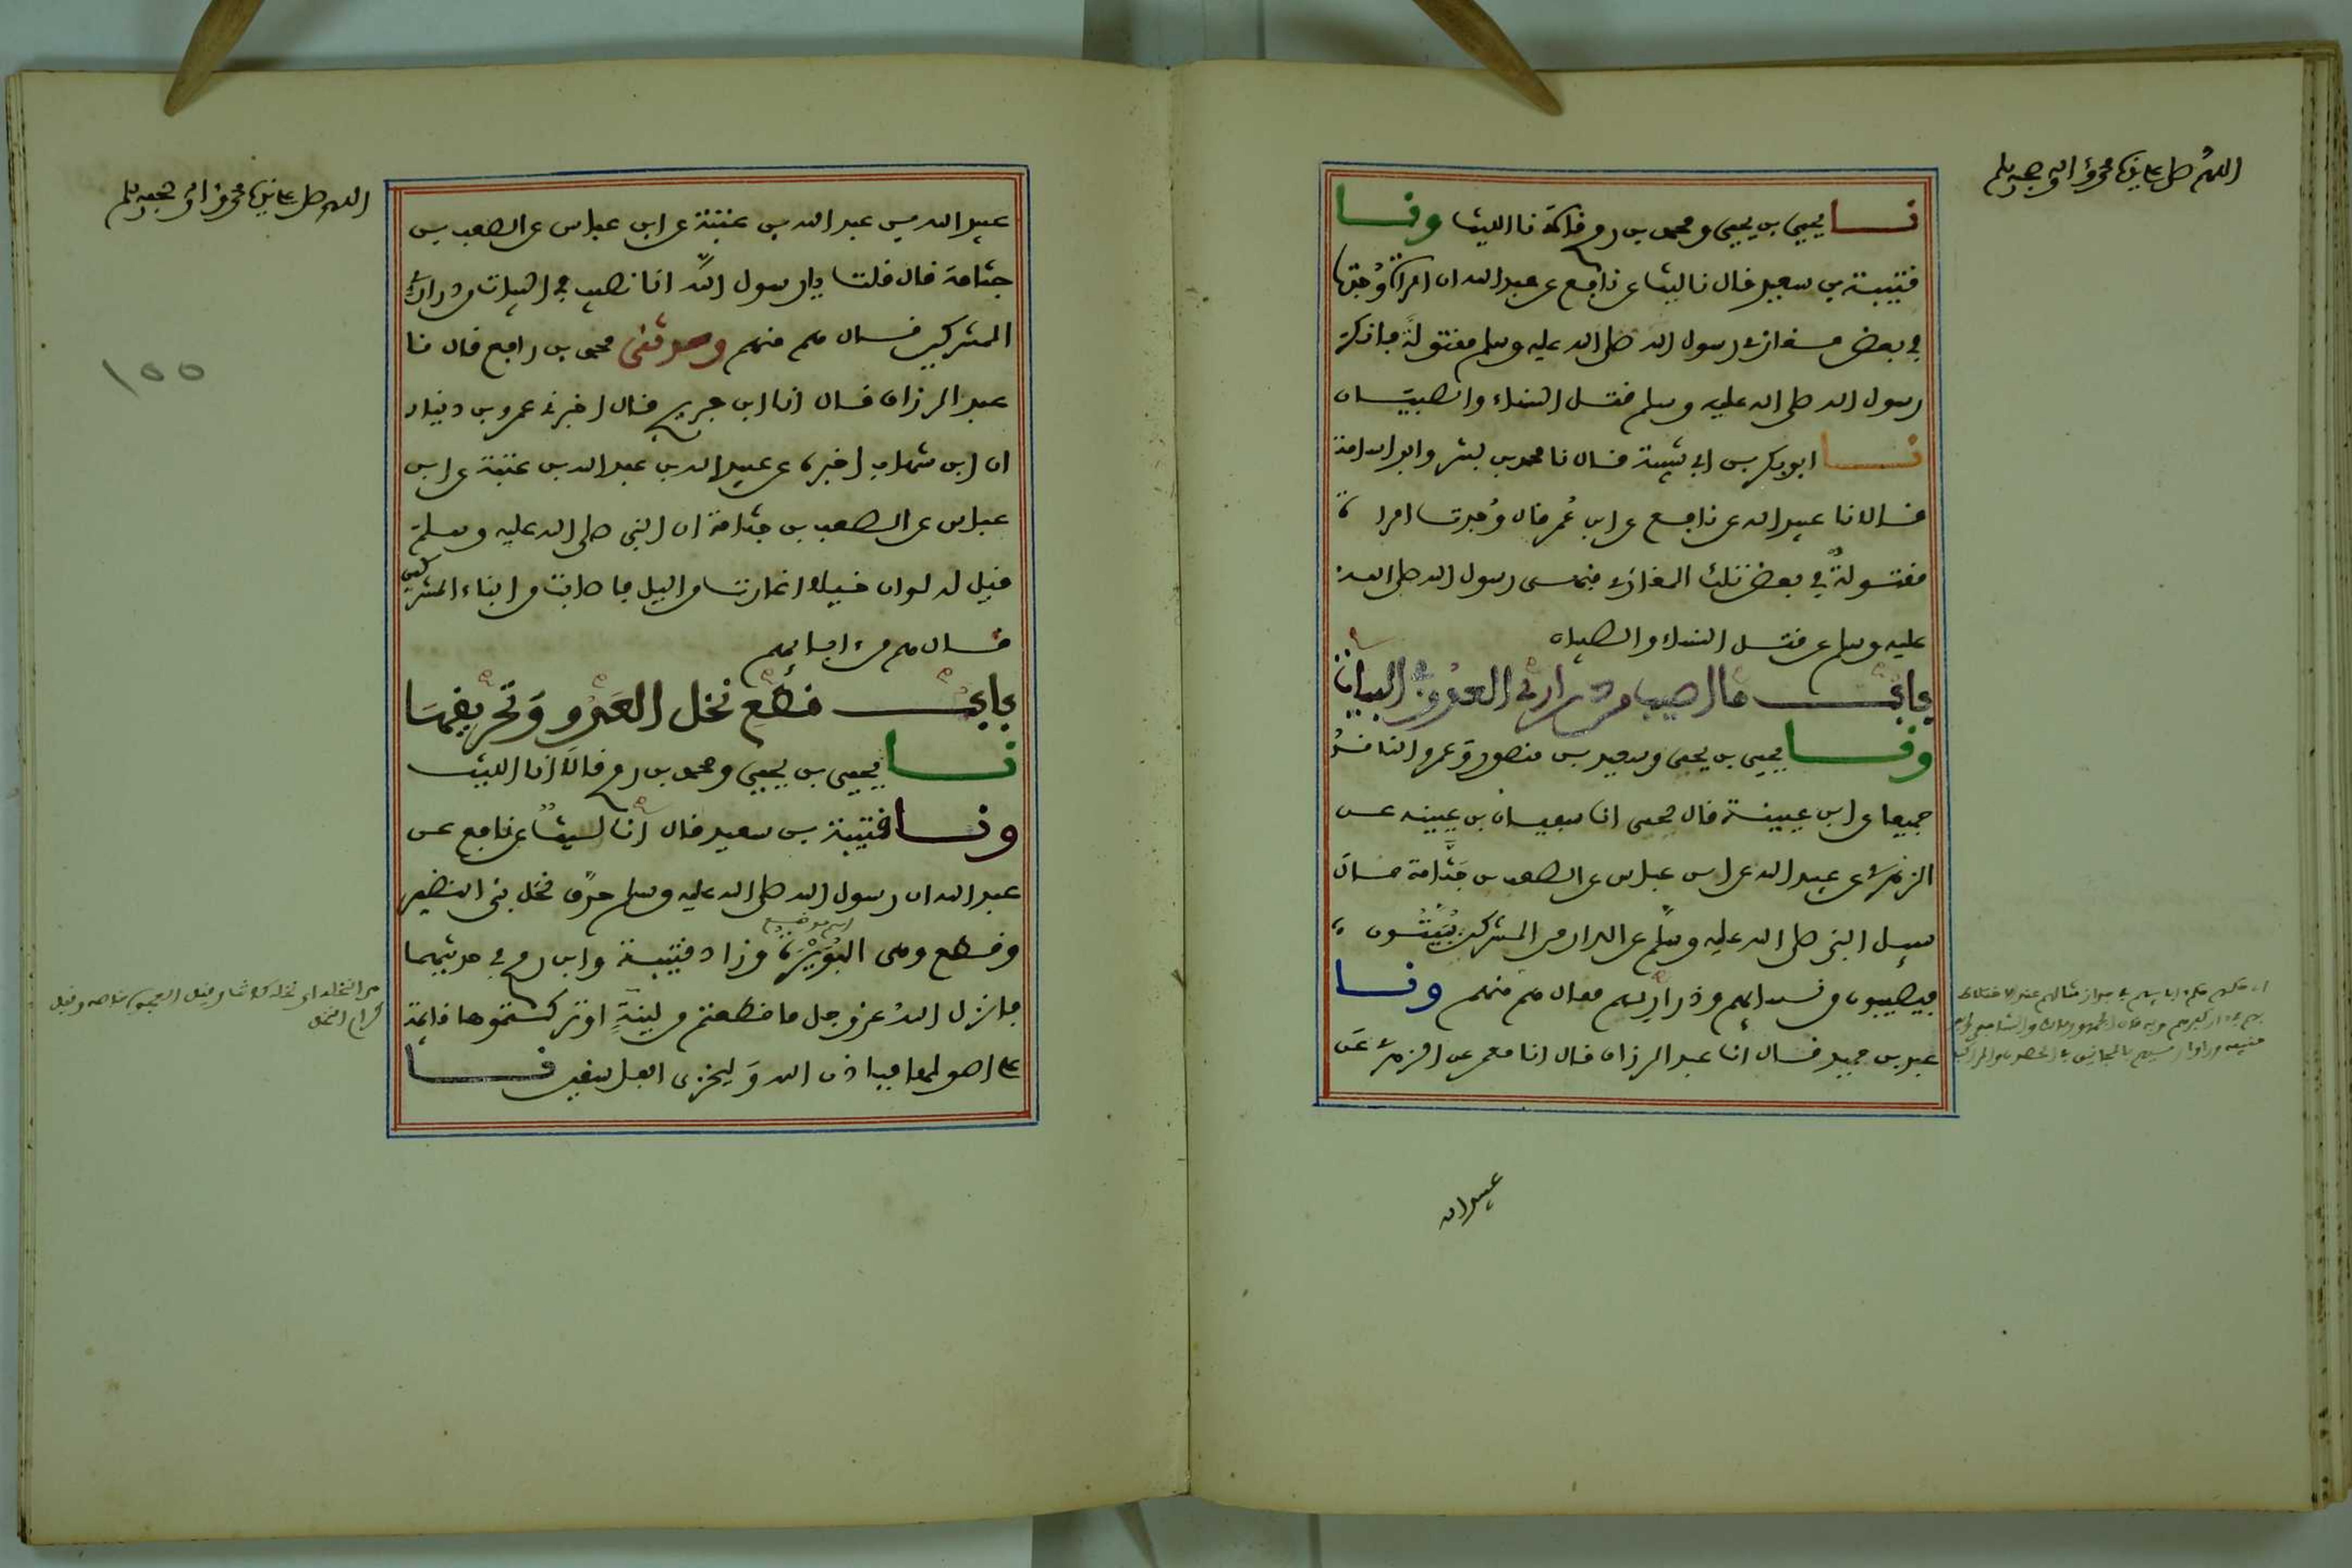 اللهم صل على نبينا محمد وآله وصحبه وسلم
نا يحيى بن يحيى ومحمد بن رمح قالا نا الليث ونا
قتيبة بن سعيد قال نا ليث عن نافع عن عبد الله ان امراة وُجدت
في بعض مغازي رسول الله صلى الله عليه وسلم مقتولةً فانكر
رسول الله صلى الله عليه وسلم قتل النساء والصبيان
نا ابو بكر بن ابي شيبة قال نا محمد بن بشر وابو اسامة
قالا نا عبيد الله عن نافع عن ابن عُمر قال وُجدت امراة
مقتولةٌ في بعض تلك المغازي فنهى رسول الله صلى الله
عليه وسلم عن قتل النساء والصبيان
باب ما اصيب من ذراري العدو في البيات
ونا يحيى بن يحيى وسعيد بن منصور وعمرو الناقد
جميعا عن ابن عيينة قال يحيى انا سفيان بن عيينه عن
الزهري عن عبيد الله عن ابن عباس عن الصعب بن جَثَّامة قال
سيل النبي صلى الله عليه وسلم عن الدار من المشركين يُبَيَّتُون
فيصيبون من نسائهم وذراريهم فقال هم منهم ونا
عبد بن حميد قال انا عبد الرزاق قال انا معمر عن الزهري عن
عبيد الله
اللهم صل على نبينا محمد وآله وصحبه وسلم
عبيد الله بن عبد الله بن عتبة عن ابن عباس عن الصعب بن
جثامة قال قلت يا رسول الله انا نصيب في البيات من ذراري
المشركين قال هم منهم وحدثني محمد بن رافع قال نا
عبد الرزاق قال انا ابن جريج قال اخبرني عمرو بن دينار
ان ابن شهاب اخبره عن عبيد الله بن عبد الله بن عتبة عن ابن
عباس عن الصعب بن جثامة ان النبي صلى الله عليه وسلم
قيل له لو ان خيلا اغارت من اليل فاصابت من ابناء المشركين
قال هم من ابائهم
باب قطع نخل العَدُو وَتحريقها
نا يحيى بن يحيى ومحمد بن رمح قالا انا الليث
ونا قتيبة بن سعيد قال انا ليث عن نافع عن
عبد الله ان رسول الله صلى الله عليه وسلم حرق نخل بني النضير
وقطع وهي البُوَيْرَة وزاد قتيبة وابن رمح في حديثهما
اسم موضع
فانزل اللهُ عز وجل ما قطعتم من لينةٍ او تركتموها قايمة
على اصولها فباذن الله وَليخزي الفاسقين نا
١٥٥